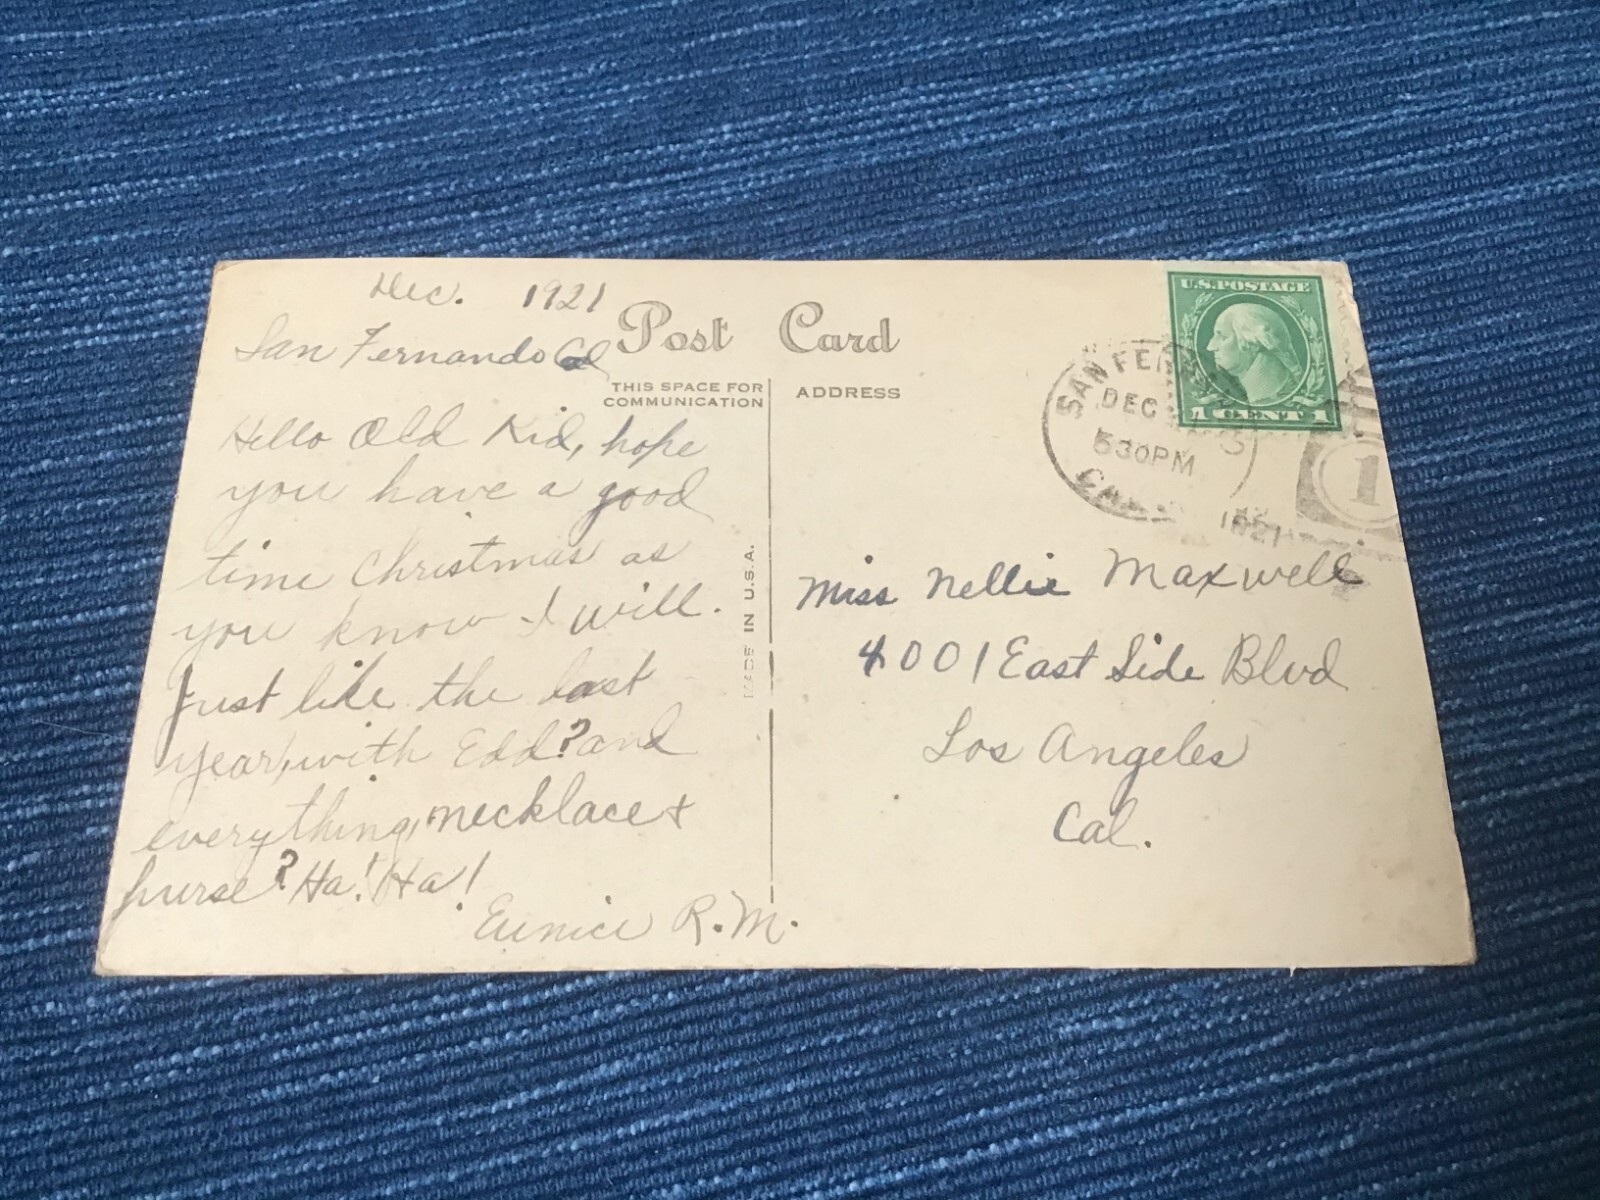 Dec. 1921
San Fernando Cal
Hello Old Kid, hope
you have a good
time Christmas as
you know I will.
Just like the last
year, with Edd? and
everything, necklace +
purse? Ha! Ha!
Eunice R.M.
Post Card
THIS SPACE FOR
COMMUNICATION
ADDRESS
MADE IN U.S.A.
U.S. POSTAGE
1 CENT 1
SAN FERNANDO
DEC
530PM
1921
1
Miss Nellie Maxwell
4001 East Side Blvd
Los Angeles
Cal.